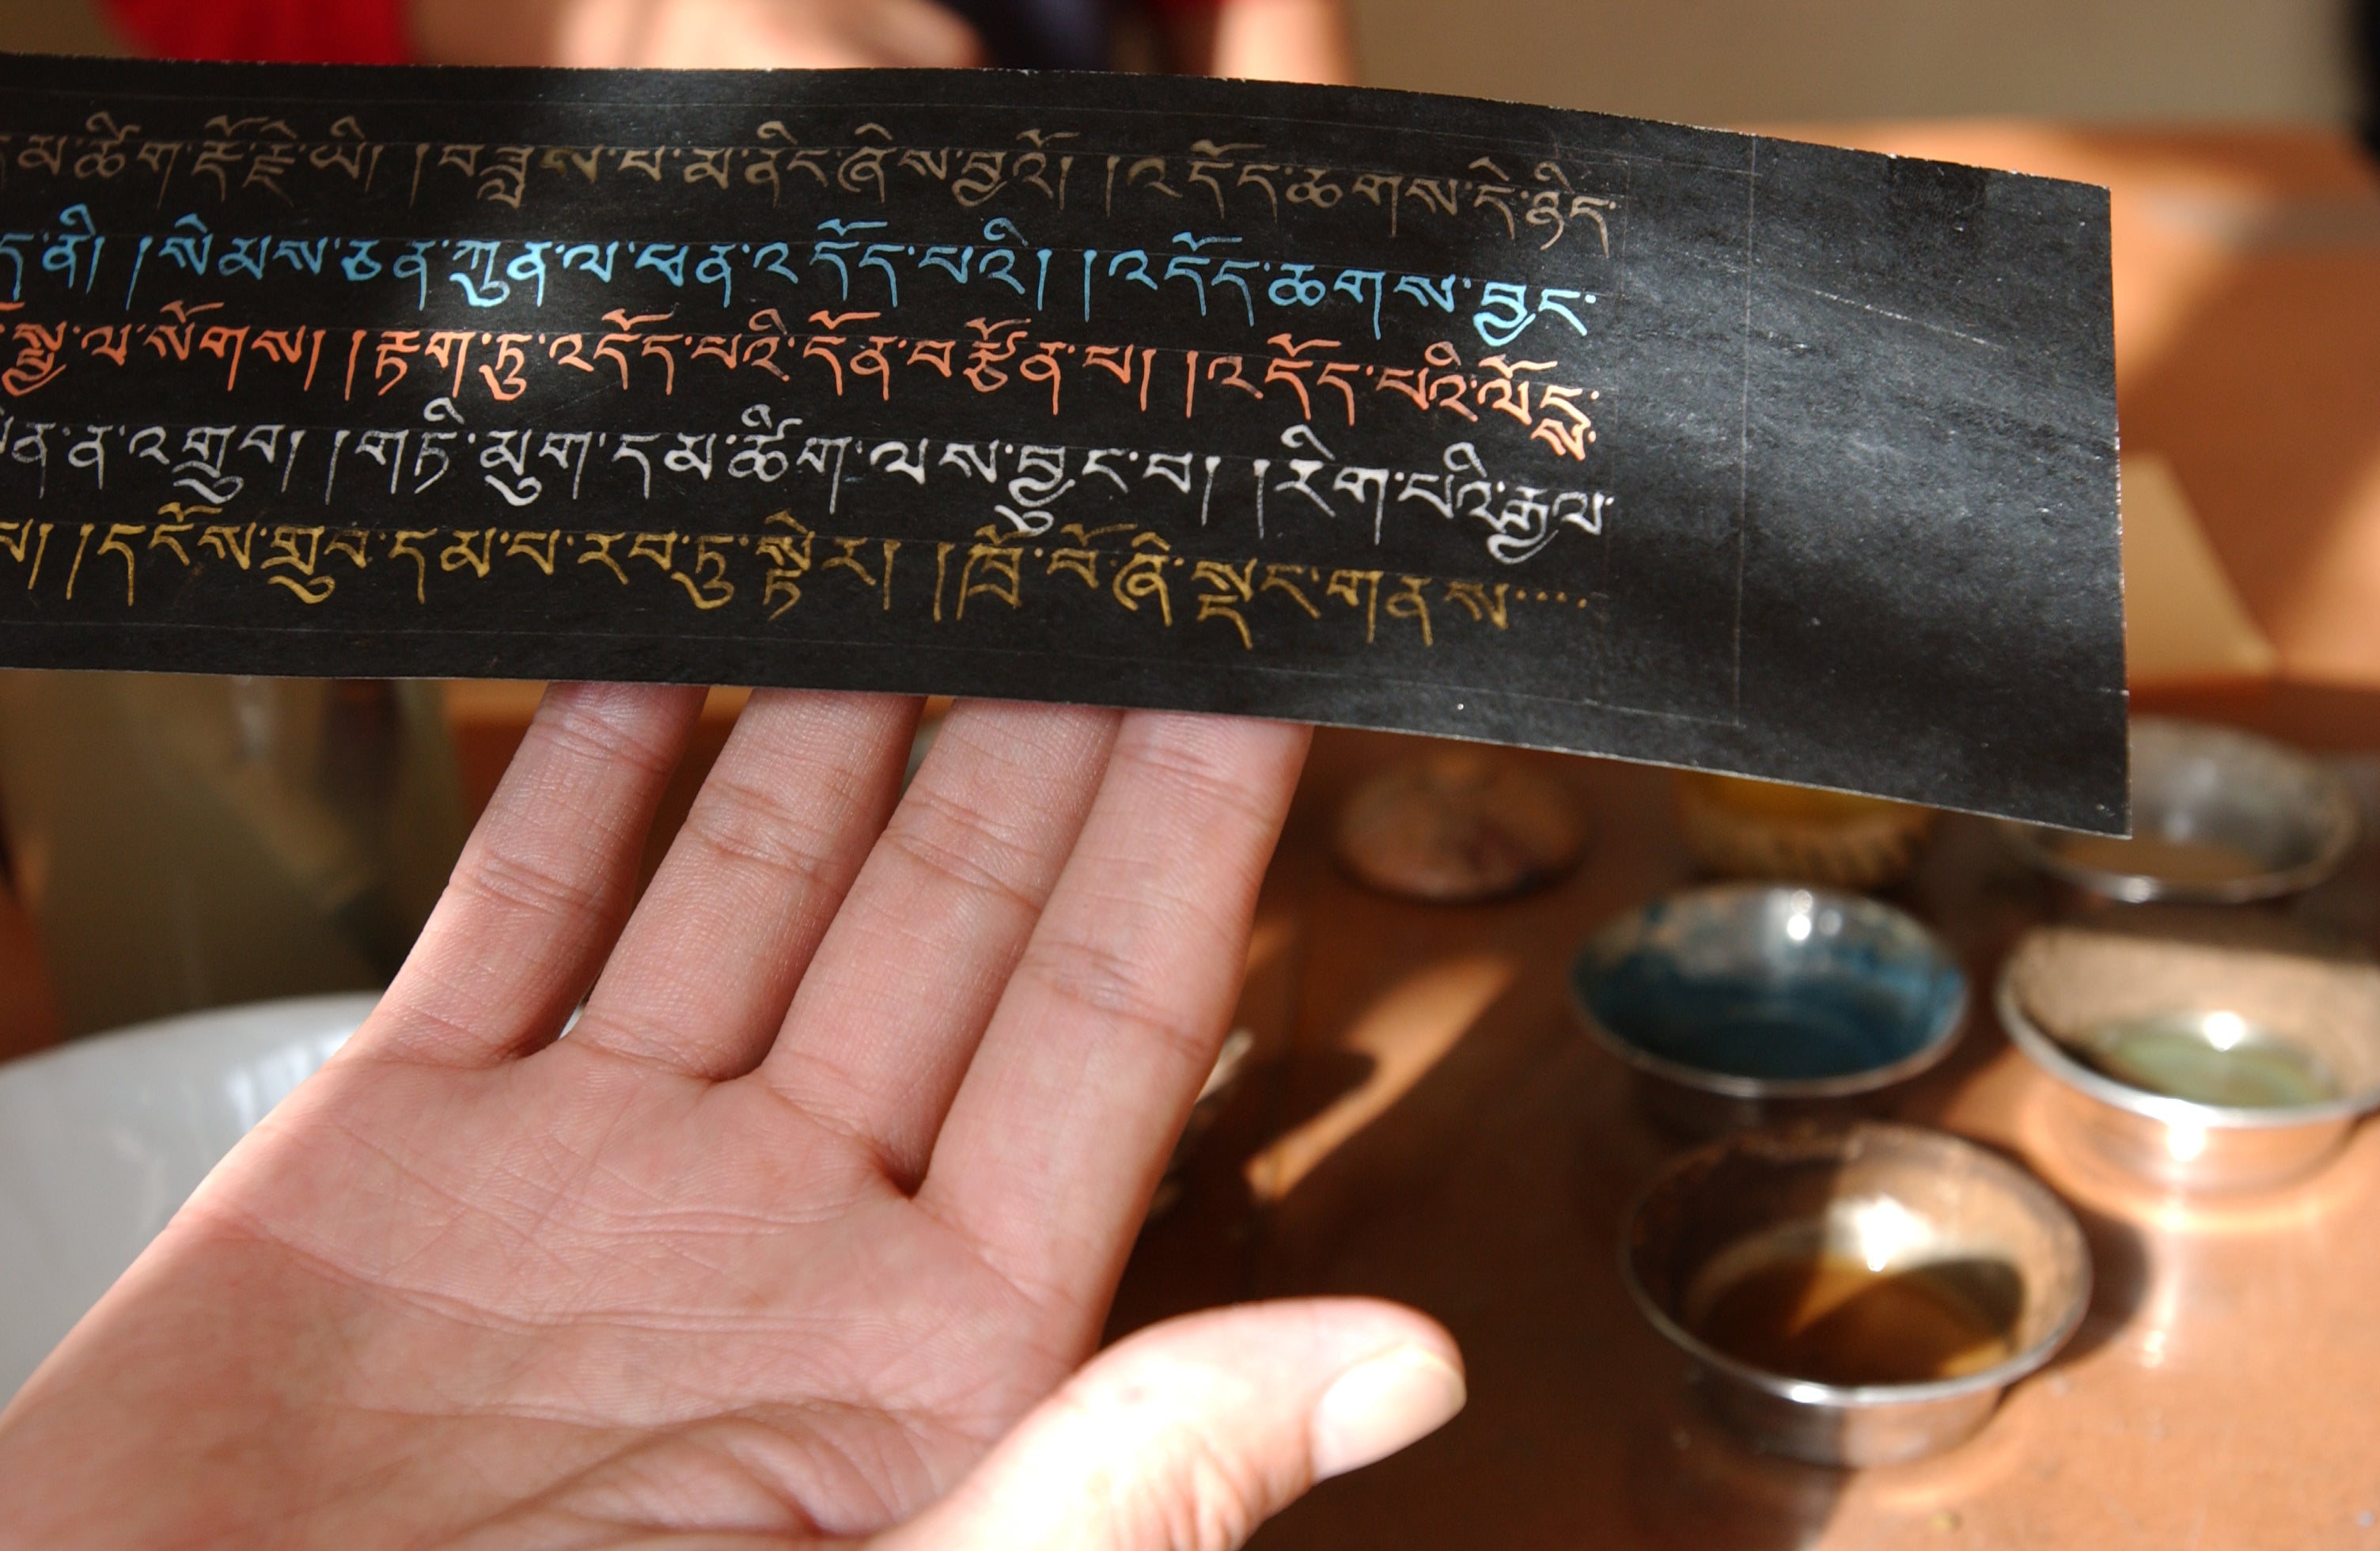 མ་ཚིག་རྡོ་རྗེ་ཡི། །བཟླས་པ་མ་ནིང་ཞེས་བྱའོ། །འདོད་ཆགས་དེ་ཉིད་
ད་ནི། །སེམས་ཅན་ཀུན་ལ་ཕན་འདོད་པའི། །འདོད་ཆགས་བྱང་
སྨྲ་ལ་སོགས། །རྟག་ཏུ་འདོད་པའི་དོན་བརྩོན་པ། །འདོད་པའི་ལོངས་
ན་འགྲུབ། །གཏི་མུག་དམ་ཚིག་ལས་བྱུང་བ། །རིག་པའི་རྒྱལ་
པ། །དངོས་གྲུབ་དམ་པ་རབ་ཏུ་སྟེར། །ཁྲོ་བོ་ཞི་སྡང་གནས····